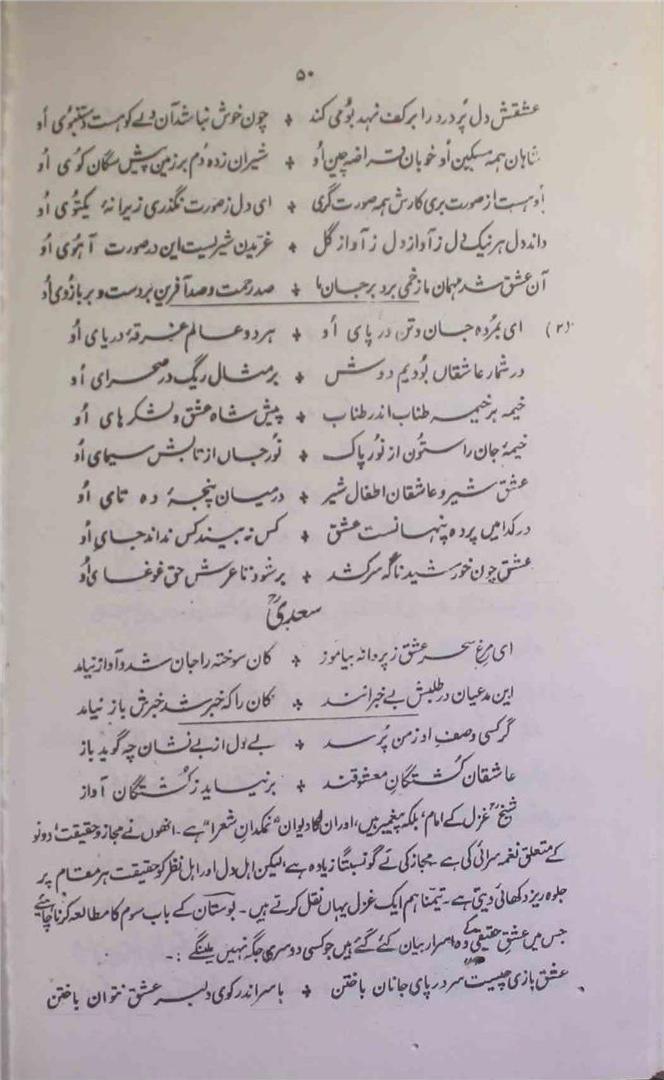 ۵۰
عشقش دل پُر درد را بر کف نهد بُو می کند ٭ چون خوش نباشد آن دلے کو هست دستنبوُی اُو
شاهان همه مسکین اُو خوبان قراضه چین اُو ٭ شیران زده دُم بر زمین پیش سگان کوُی اُو
اُو هست از صورت بری کارش همه صورت گری ٭ ای دل ز صورت نگذری زیرا نۂ یکتوُی اُو
داند دل هر نیک دل ز آواز دل ز آواز گل ٭ غرّیدن شیر لیست این در صورت آهوُی اُو
آن عشق شد مهمان ما زخمی برد بر جان ما ٭ صد رحمت و صد آفرین بر دست و بر بازوُی اُو
(۲) ای بمُرده جان و تن در پای اُو ٭ هر دو عالم غرقۂ دریای اُو
در شمار عاشقاں بُودیم دوش ٭ بر مثال ریگ در صحرای اُو
خیمه بر خیمه طناب اندر طناب ٭ پیش شاه عشق و لشکر های اُو
خیمۂ جان را ستون از نُور پاک ٭ نُور جاں از تابش سیمای اُو
عشق شیر و عاشقان اطفال شیر ٭ در میان پنجۂ ده تای اُو
در کدامیں پرده پنہانست عشق ٭ کس نہ بیند کس نداند جای اُو
عشق چون خورشید ناگه سر کشد ٭ بر شود تا عرش حق غوغای اُو
سعدیؒ
ای مرغ سحر عشق ز پروانه بیاموز ٭ کان سوخته را جان شد و آواز نیامد
این مدعیان در طلبش بے خبرانند ٭ کان را که خبر شد خبرش باز نیامد
گر کسی وصفِ او ز من پُرسد ٭ بے دل از بے نشان چہ گوید باز
عاشقان کُشتگانِ معشوقند ٭ بر نیاید ز کُشتگان آواز
شیخؒ غزل کے امام، بلکہ پیغمبر ہیں، اور ان کا دیوان "نمکدانِ شعرا" ہے۔ انھوں نے مجاز و حقیقت، دونو
کے متعلق نغمہ سرائی کی ہے۔ مجاز کی لَے گو نسبتاً زیادہ ہے، لیکن اہل دل اور اہل نظر کو حقیقت ہر مقام پر
جلوہ ریز دکھائی دیتی ہے۔ تیمّناً ہم ایک غزل یہاں نقل کرتے ہیں۔ بوستان کے باب سوم کا مطالعہ کرنا چاہئے
جس میں عشقِ حقیقی کے وہ اسرار بیان کئے گئے ہیں جو کسی دوسری جگہ نہیں ملینگے :۔
عشق بازی چیست سر در پای جانان باختن ٭ با سر اندر کوی دلبر عشق نتوان باختن